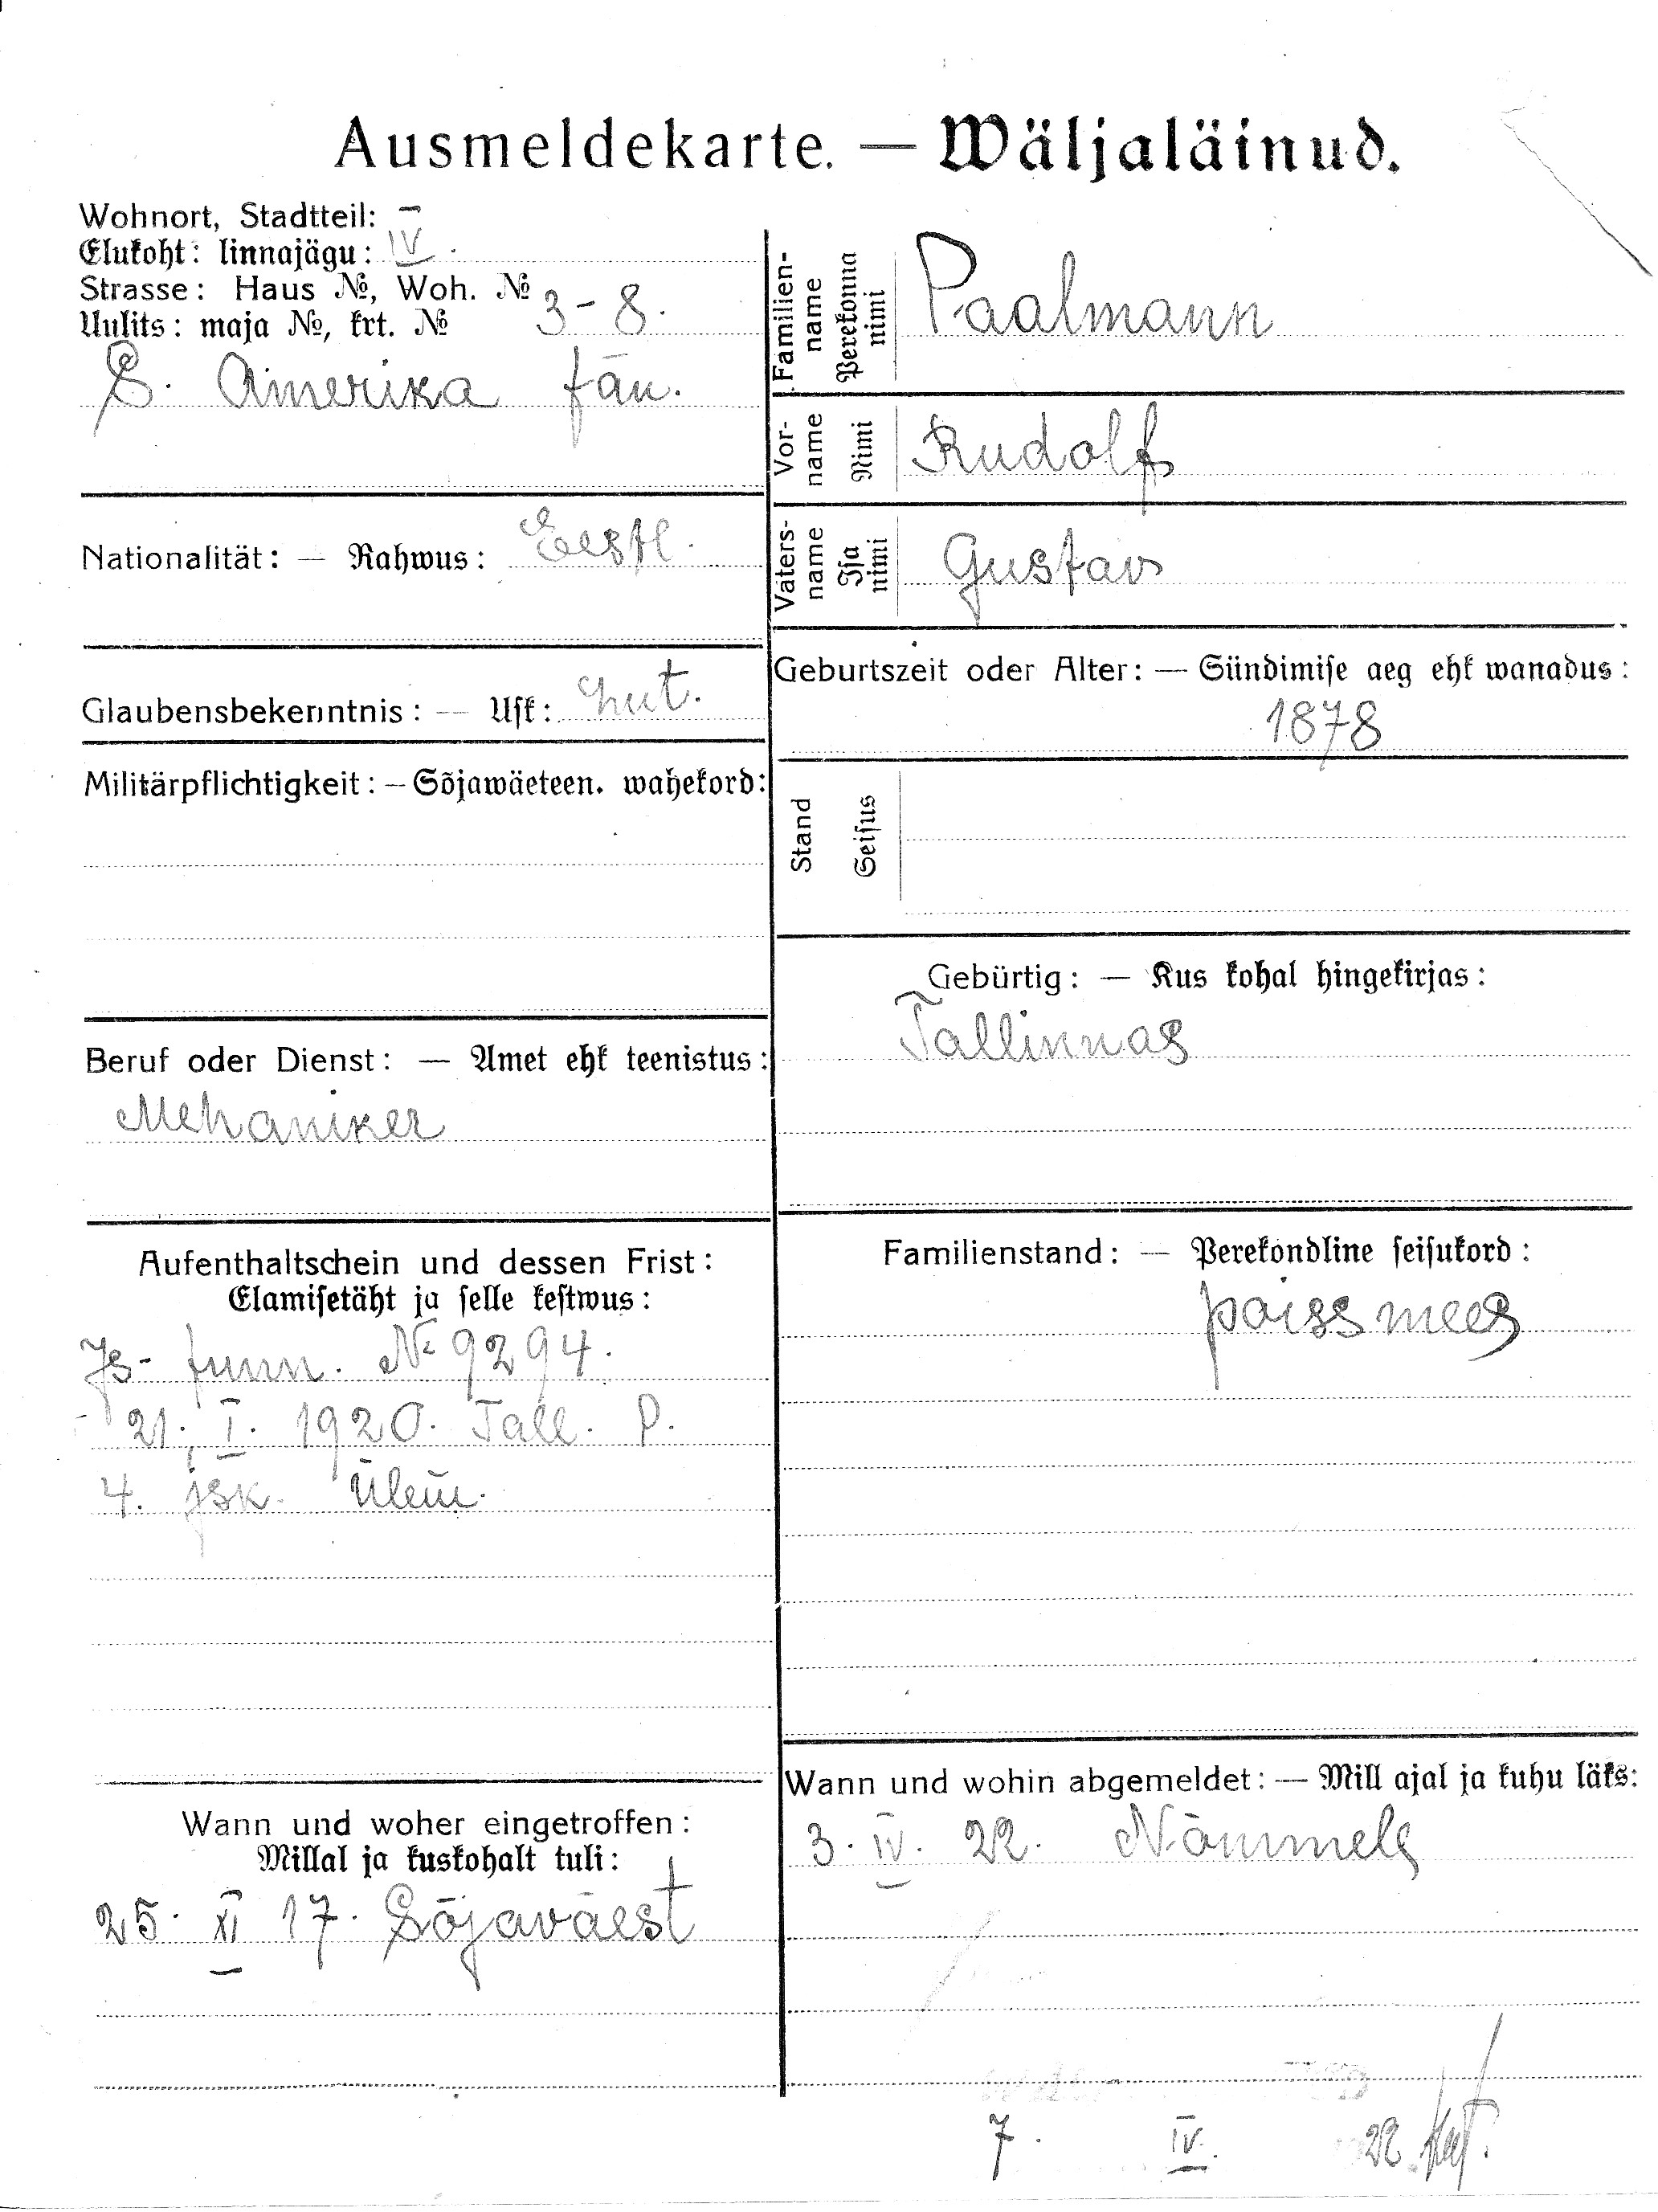 Ausmeldekarte. — Wäljaläinud.
Wohnort, Stadtteil:
Elukoht: linnajägu: IV.
Strasse: Haus №, Woh. №
Uulits: maja №, krt. № 3-8.
S. Amerika tän.
Nationalität: — Rahwus: Eestl.
Glaubensbekenntnis: — Usk: Lut.
Militärpflichtigkeit: — Sõjawäeteen. wahekord:
Beruf oder Dienst: — Amet ehk teenistus:
Mehaniker
Aufenthaltschein und dessen Frist:
Elamisetäht ja selle kestwus:
Is- tunn. № 9294.
21. I. 1920. Tall. P.
4. jsk. Ülem.
Wann und woher eingetroffen:
Millal ja kuskohalt tuli:
25. XI 17. Sõjaväest
Familien-name Perekonna nimi Paalmann
Vor-name Nimi Rudolf
Vaters-name Isa nimi Gustav
Geburtszeit oder Alter: — Sündimise aeg ehk wanadus:
1878
Stand Seisus
Gebürtig: — Kus kohal hingekirjas:
Tallinnas
Familienstand: — Perekondline seisukord:
poissmees
Wann und wohin abgemeldet: — Mill ajal ja kuhu läks:
3. IV. 22. Nõmmele
7. IV. 22